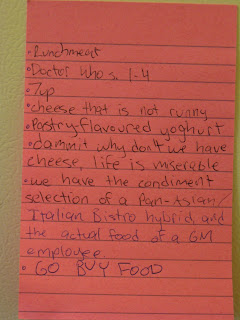 • Lunchmeat
• Doctor Who s. 1-4
• 7up
• cheese that is not runny
• Pastry flavoured yoghurt
• dammit why don't we have
cheese, life is miserable
• we have the condiment
selection of a Pan-Asian/
Italian Bistro hybrid and
the actual food of a GM
employee.
• GO BUY FOOD